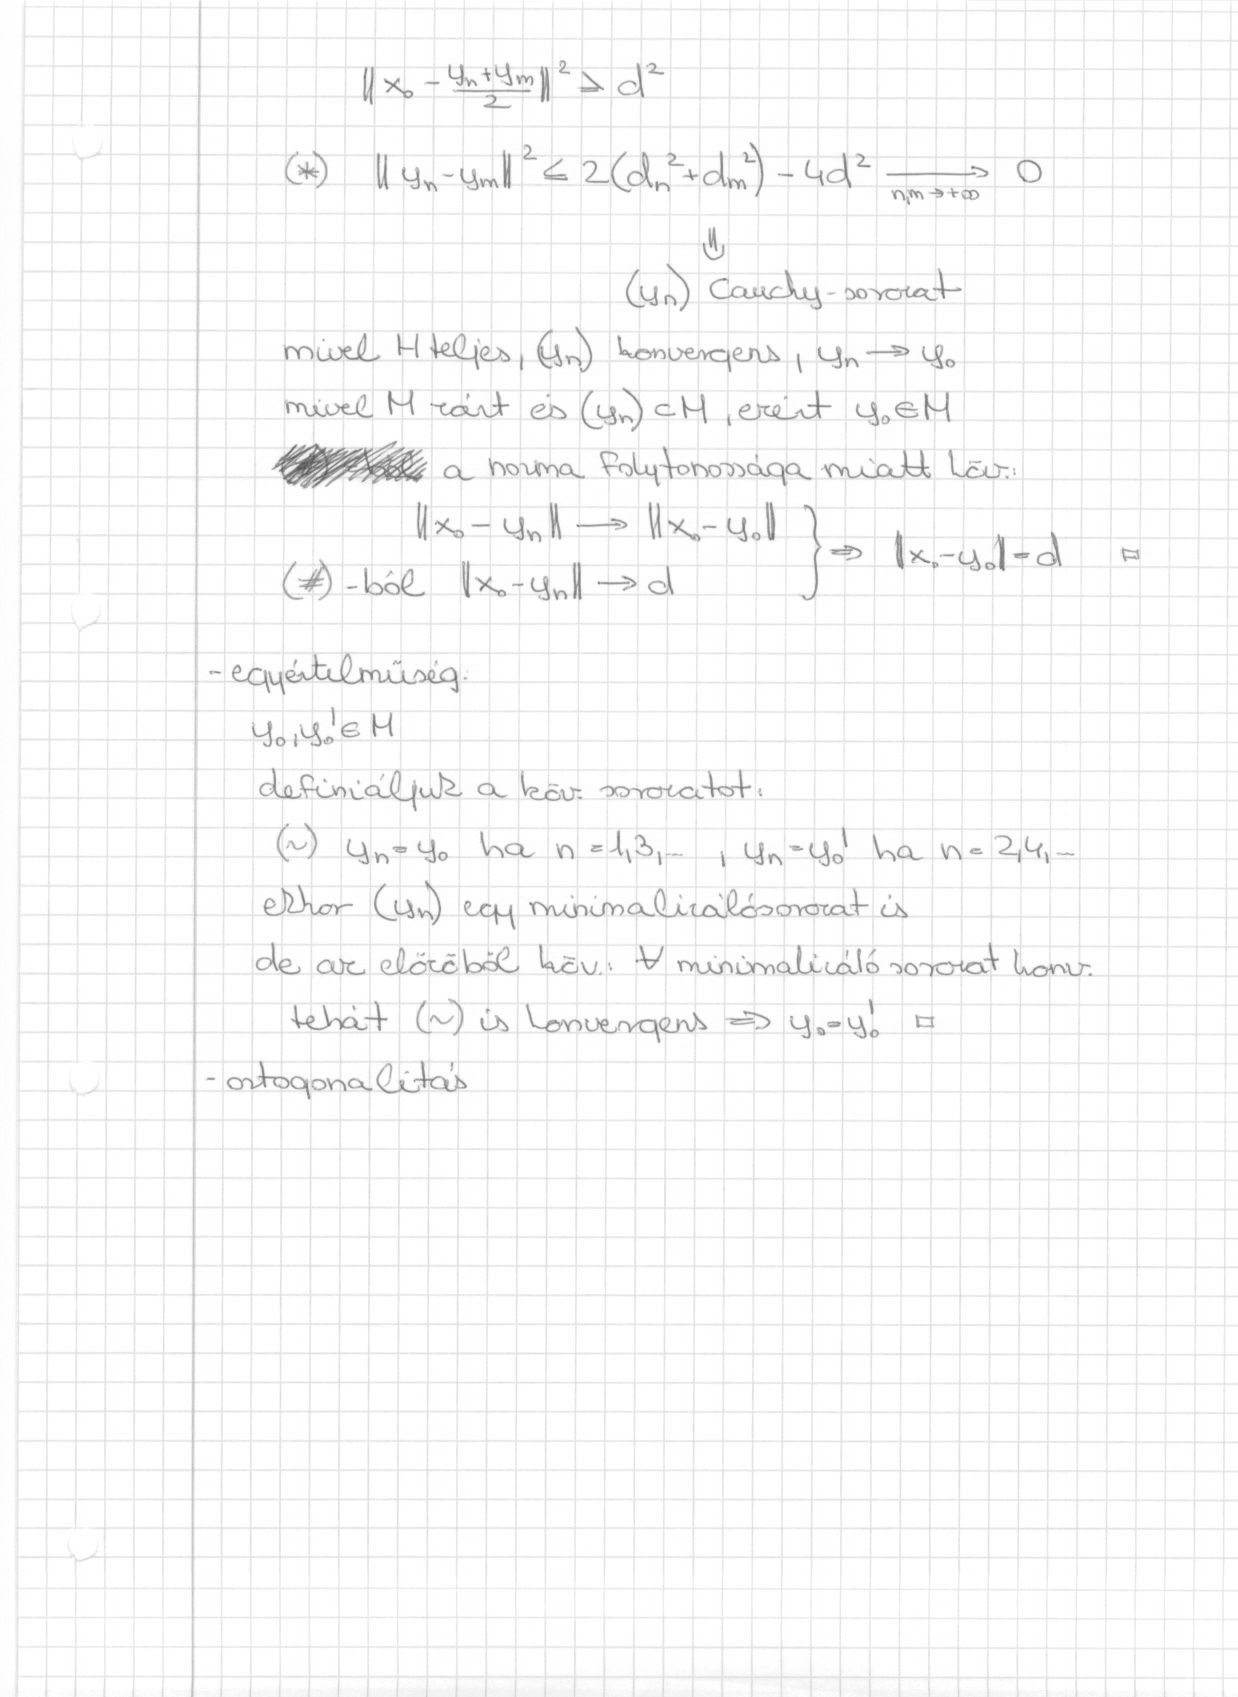 ‖x₀ - (yₙ+yₘ)/2‖² ≥ d²
(*) ‖yₙ-yₘ‖² ≤ 2(dₙ²+dₘ²) - 4d² ⟶ 0
n,m→+∞
⇓
(yₙ) Cauchy-sorozat
mivel H teljes, (yₙ) konvergens, yₙ → y₀
mivel M zárt és (yₙ) ⊂ M, ezért y₀ ∈ M
a norma folytonossága miatt köv.:
‖x₀ - yₙ‖ → ‖x₀ - y₀‖ } ⇒ ‖x₀-y₀‖=d □
(#)-ből ‖x₀-yₙ‖ → d
- egyértelműség:
y₀, y₀' ∈ M
definiáljuk a köv. sorozatot:
(~) yₙ=y₀ ha n=1,3,... , yₙ=y₀' ha n=2,4,...
ekkor (yₙ) egy minimalizálósorozat is
de az előzőből köv.: ∀ minimalizáló sorozat konv.
tehát (~) is konvergens ⇒ y₀=y₀' □
- ortogonalitás